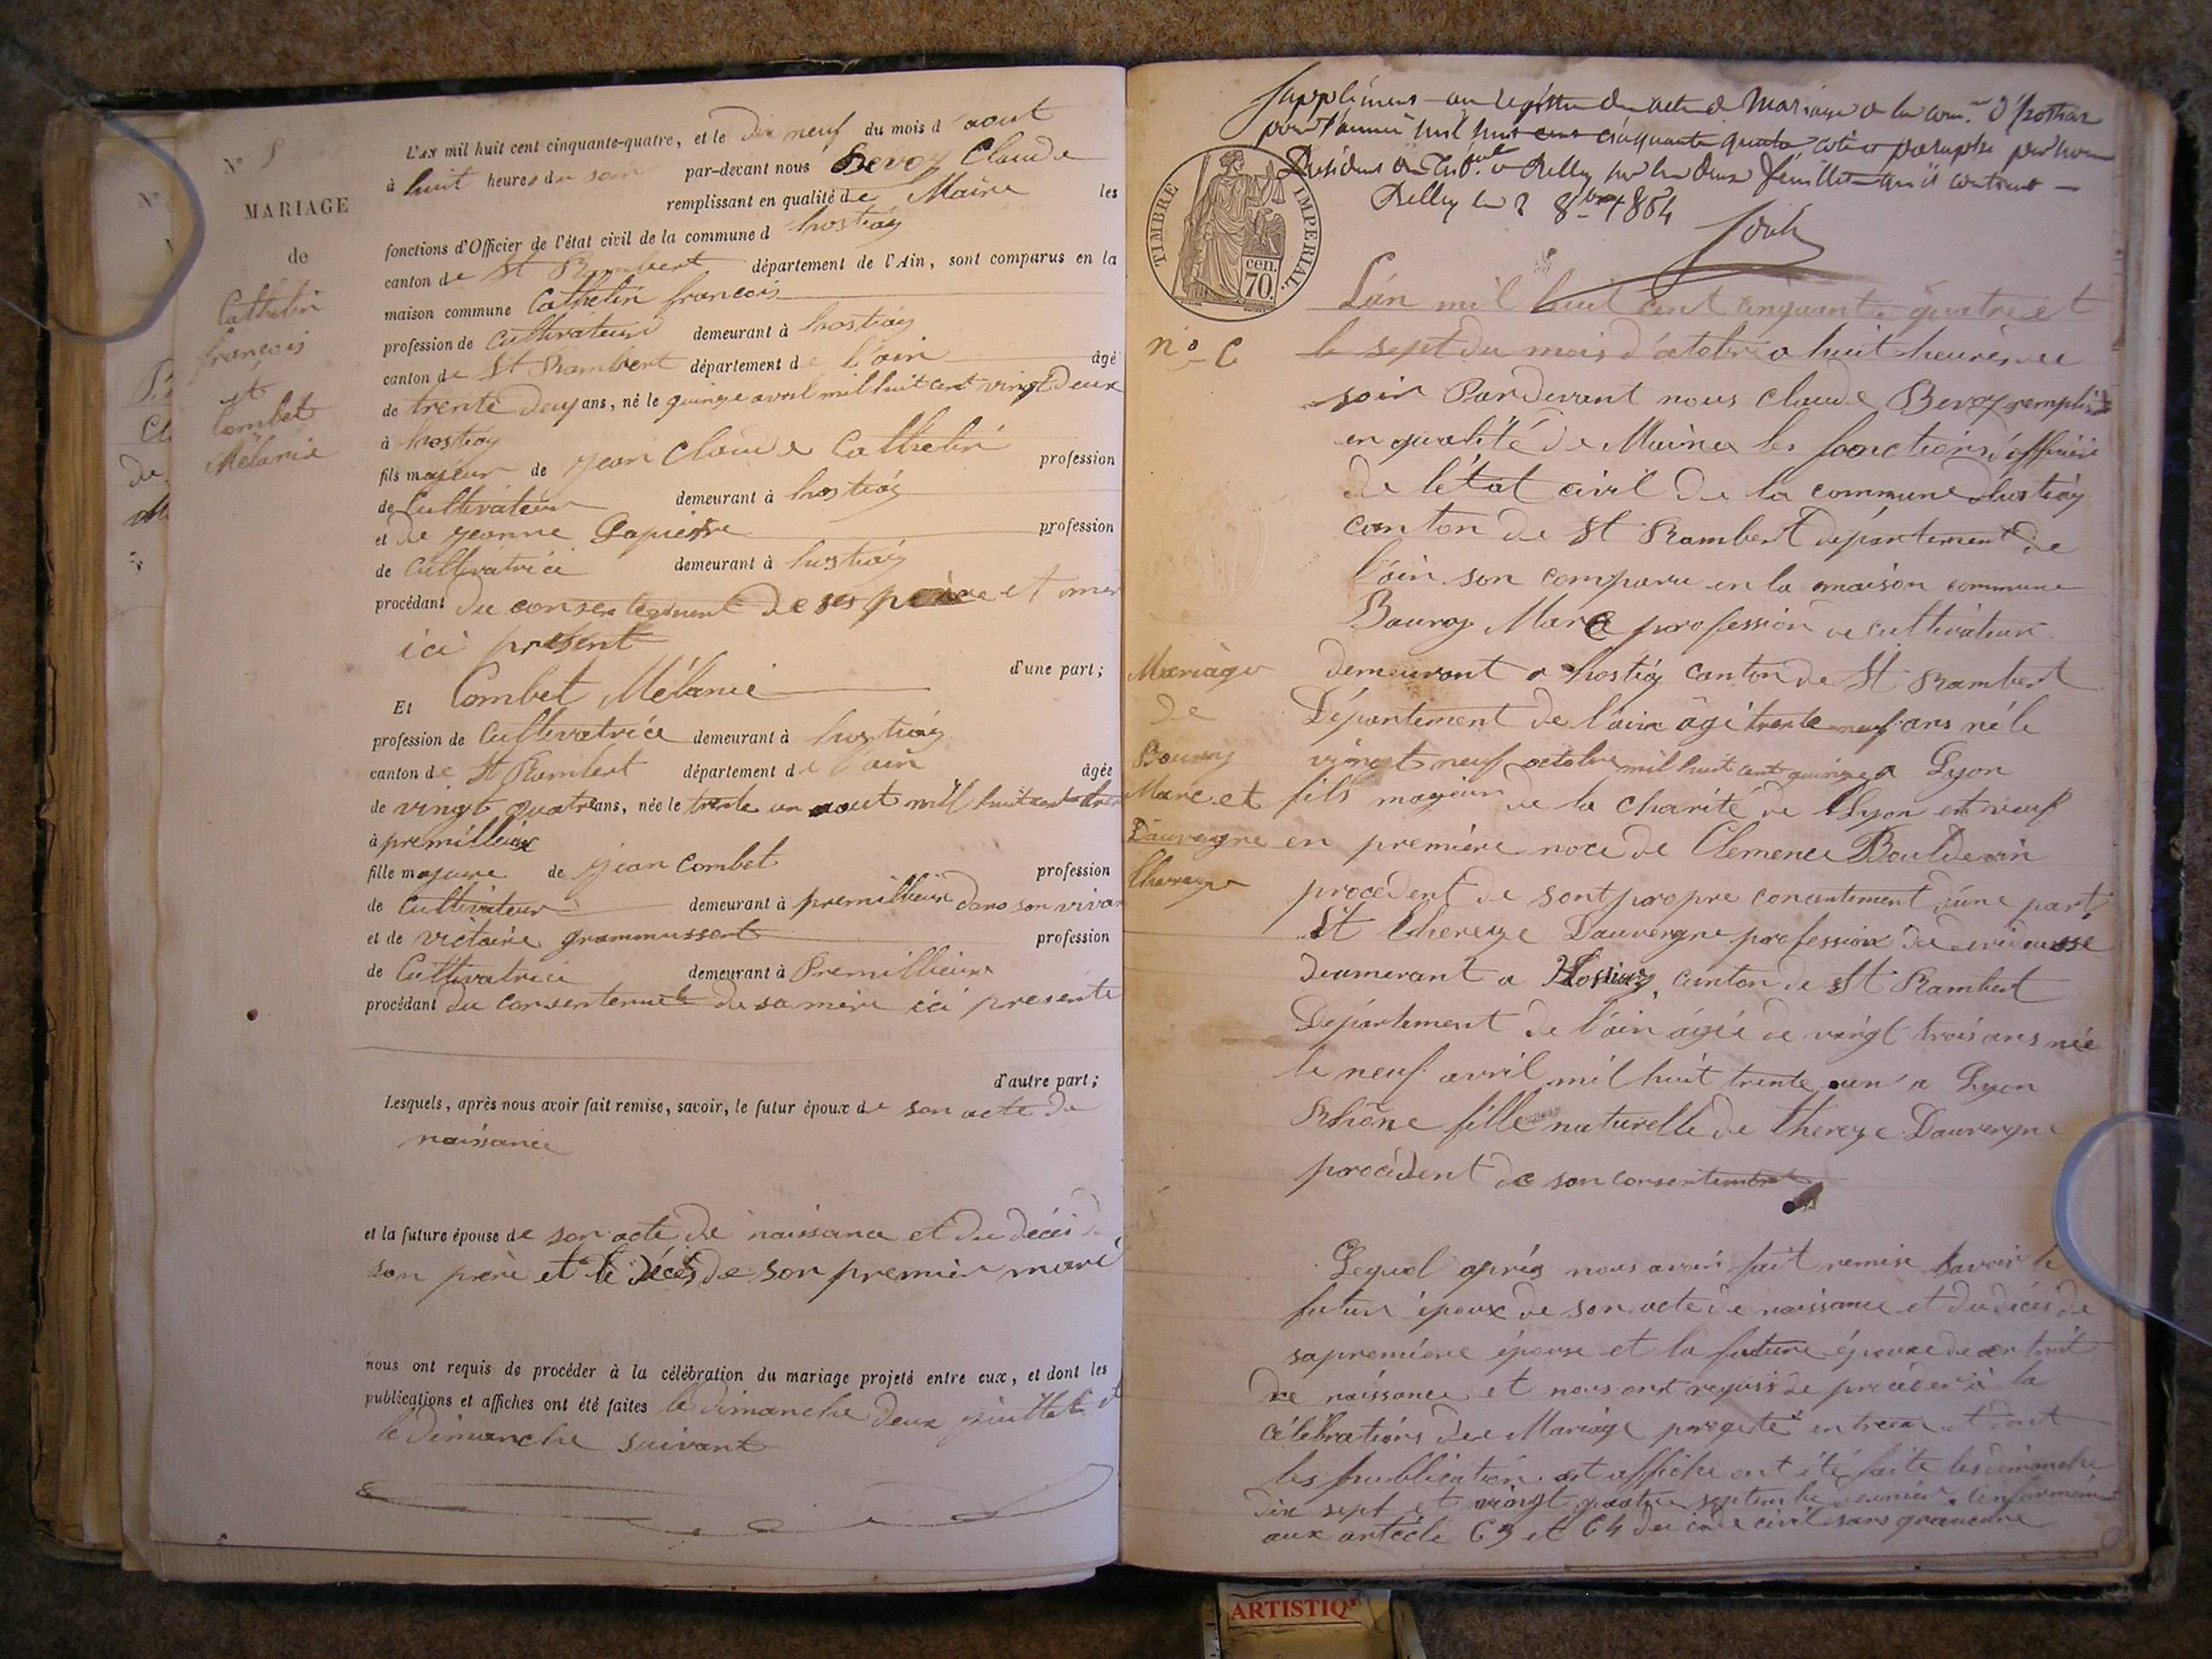 N° 5
MARIAGE
de
Cathelin
françois
et
Combet
Mélanie
L'AN mil huit cent cinquante-quatre, et le dix neuf du mois d'aout
à huit heures du soir par-devant nous Bevoz Claude
remplissant en qualité de Maire les
fonctions d'Officier de l'état civil de la commune d hostiaz
canton de St Rambert département de l'Ain, sont comparus en la
maison commune Cathelin françois
profession de cultivateur demeurant à hostiaz
canton de St Rambert département de l'ain âgé
de trente deux ans, né le quinze avril mil huit cent vingt deux
à hostiaz
fils majeur de jean Claude Cathelin profession
de Cultivateur demeurant à hostiaz
et de jeanne Lapierre profession
de cultivatrice demeurant à hostiaz
procédant du consentement de ses père et mer
ici présent
d'une part;
Et Combet Mélanie
profession de Cultivatrice demeurant à hostiaz
canton de St Rambert département de l'ain âgée
de vingt quatre ans, née le trente un aout mil huit cent
à premillieux
fille majeure de jean Combet profession
de Cultivateur demeurant à premillieux dans son vivan
et de victoire grammussent profession
de Cultivatrice demeurant à Premillieux
procédant du consentement de sa mère ici présente
d'autre part;
Lesquels, après nous avoir fait remise, savoir, le futur époux de son acte de
naissance
et la future épouse de son acte de naissance et du décès de
son père et le décès de son premier mari
nous ont requis de procéder à la célébration du mariage projeté entre eux, et dont les
publications et affiches ont été faites le dimanche deux juillet et
le dimanche suivant
Supplément au registre des actes de Mariage de la com.ne d'hostiaz
pour l'année mil huit cent cinquante quatre coté et paraphé par nous
Président du Trib.al de Belley sur les deux feuillets qu'il contient
Belley le 2 8bre 1854
TIMBRE IMPERIAL
cen.
70.
L'an mil huit cent cinquante quatre et
n° 6
le sept du mois d'octobre a huit heures du
soir Pardevant nous Claude Bevoz remplist
en qualité de Maire les fonctions d'officier
de l'état civil de la commune d'hostiaz
canton de St Rambert département de
l'ain son comparu en la maison commune
Bauroy Marc profession de cultivateur
demeurant a hostiaz canton de St Rambert
Département de l'ain âgé trente neuf ans né le
vingt neuf octobre mil huit cent quinze a Lyon
fils majeur de la charité de Lyon et veuf
en première noce de Clemence Bouldevin
procédent de sont propre conentement d'une part
Mariage
de
Bauroy
Marc et
Dauvergne
thereze
Et thereze Dauvergne profession de devideusse
deumerant a Hostiaz canton de St Rambert
Département de l'ain âgée de vingt trois ans née
le neuf avril mil huit trente un a Lyon
Rhône fille naturelle de thereze Dauvergne
procédent de son consentement
Lequel après nous avoir fait remise savoir le
futur époux de son acte de naissance et du décès de
sa première épouse et la future épouse de extrait
de naissance et nous ont requis de procéder à la
célébrations des Mariage progeté entreux et dont
les publication et affiche ont été faite les dimanche
dix sept et vingt quatre septembre dernier Conformément
aux article 63 et 64 du code civil sans qu'aucune
ARTISTIQ